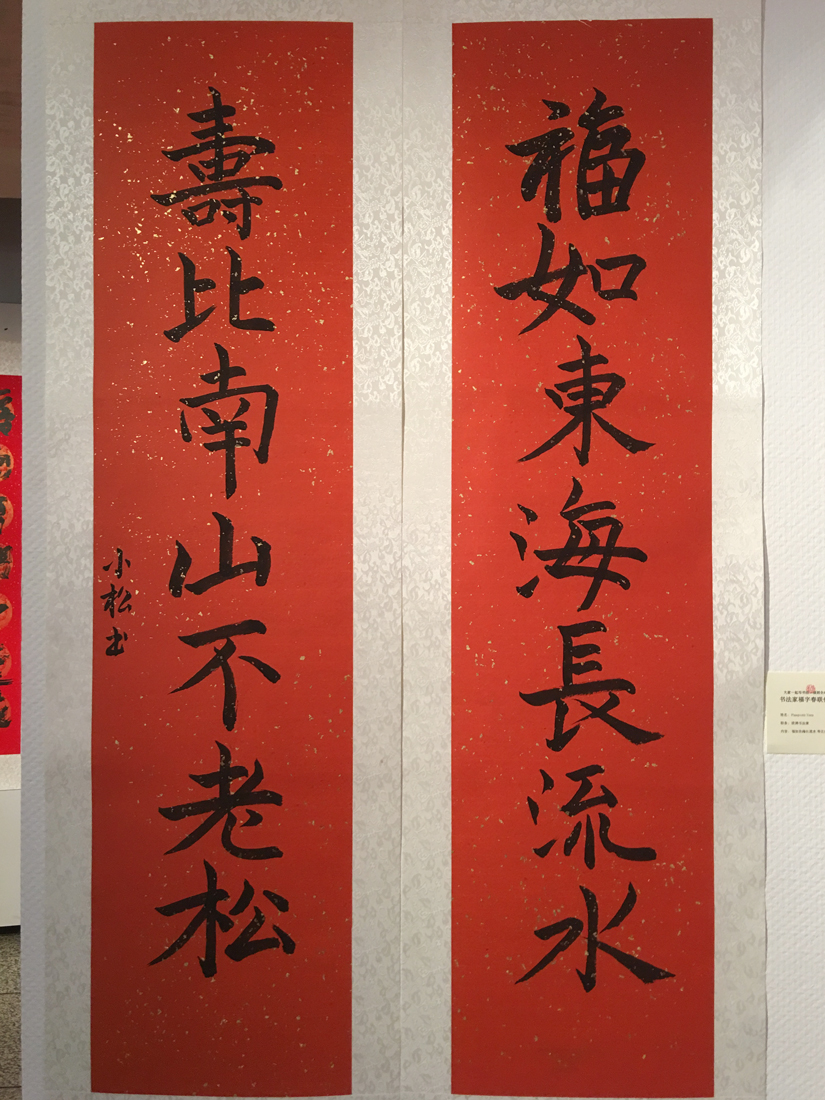 福如東海長流水
壽比南山不老松
小松书
书法家楹字春联